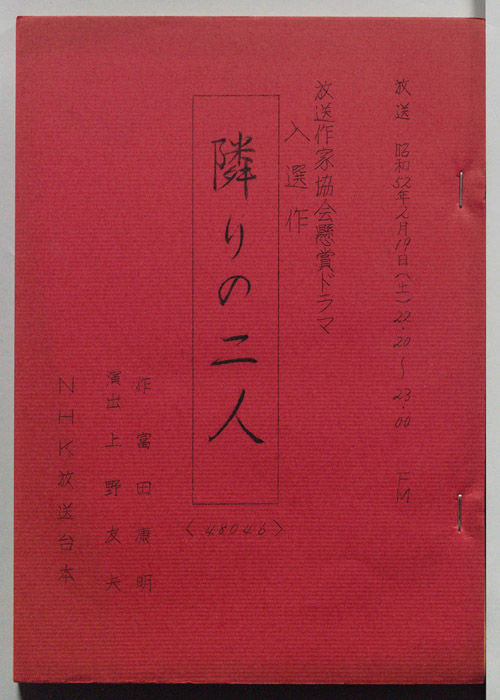 放送 昭和52年2月19日(土) 22.20〜23.00 FM
放送作家協会懸賞ドラマ
入選作
隣りの二人
〈48046〉
作 富田康明
演出 上野友夫
NHK放送台本